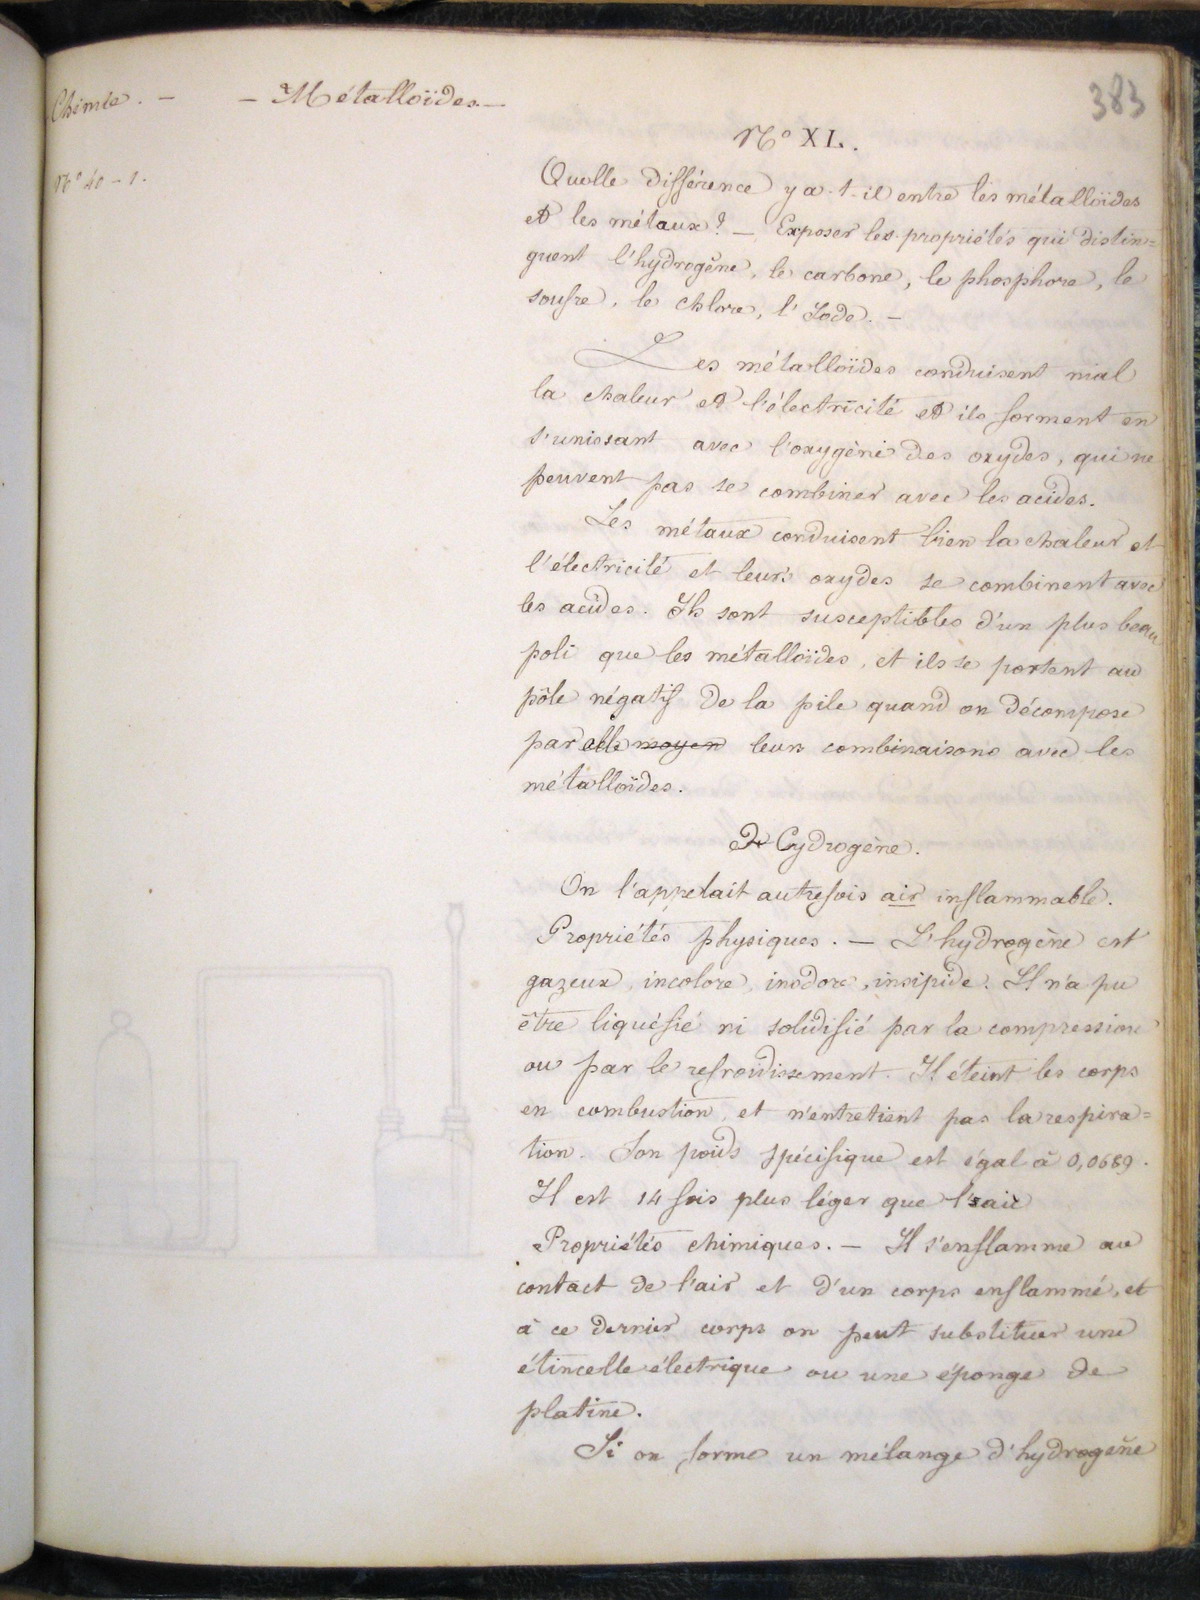 Chimie. — — Métalloïdes —
383
No XL.
No 40 - 1.
Quelle différence y a-t-il entre les métalloïdes
et les métaux? — Exposer les propriétés qui distin=
guent l'hydrogène, le carbone, le phosphore, le
soufre, le chlore, l'Iode. —
Les métalloïdes conduisent mal
la chaleur et l'électricité et ils forment en
s'unissant avec l'oxygène des oxydes, qui ne
peuvent pas se combiner avec les acides.
Les métaux conduisent bien la chaleur et
l'électricité et leurs oxydes se combinent avec
les acides. Ils sont susceptibles d'un plus beau
poli que les métalloïdes, et ils se portent au
pôle négatif de la pile quand on décompose
par elle moyen leurs combinaisons avec les
métalloïdes.
Hydrogène.
On l'appelait autrefois air inflammable.
Propriétés physiques. — L'hydrogène est
gazeux, incolore, inodore, insipide. Il n'a pu
être liquéfié ni solidifié par la compression
ou par le refroidissement. Il éteint les corps
en combustion, et n'entretient pas la respira=
tion. Son poids spécifique est égal à 0,0689.
Il est 14 fois plus léger que l'air
Propriétés chimiques. — Il s'enflamme au
contact de l'air et d'un corps enflammé, et
à ce dernier corps on peut substituer une
étincelle électrique ou une éponge de
platine.
Si on forme un mélange d'hydrogène